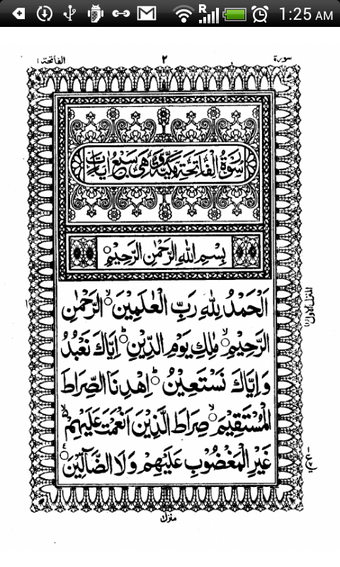 1:25 AM
سورة ٢ الفاتحة١
سُوْرَةُ الْفَاتِحَةِ مَكِّيَّةٌ وَّهِىَ سَبْعُ اٰيَاتٍ
بِسْمِ اللّٰهِ الرَّحْمٰنِ الرَّحِيْمِ
اَلْحَمْدُ لِلّٰهِ رَبِّ الْعٰلَمِيْنَ الرَّحْمٰنِ
الرَّحِيْمِ مٰلِكِ يَوْمِ الدِّيْنِ اِيَّاكَ نَعْبُدُ
وَاِيَّاكَ نَسْتَعِيْنُ اِهْدِنَا الصِّرَاطَ
الْمُسْتَقِيْمَ صِرَاطَ الَّذِيْنَ اَنْعَمْتَ عَلَيْهِمْ
غَيْرِ الْمَغْضُوْبِ عَلَيْهِمْ وَلَا الضَّآلِّيْنَ
منزل